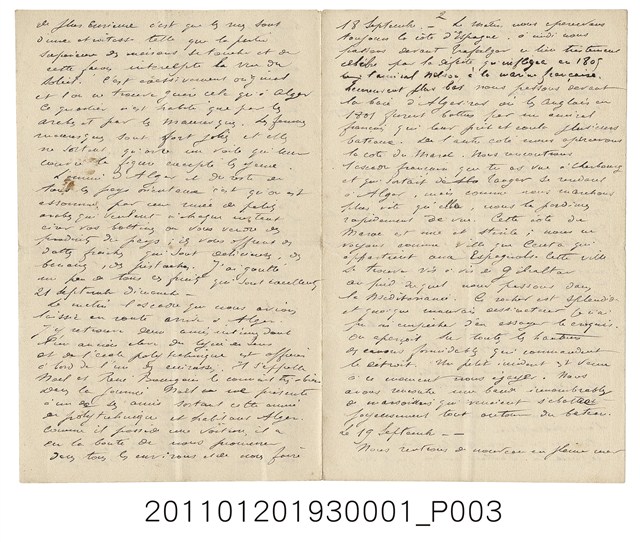 de plus curieux c'est que les rues sont
d'une étroitesse telle que la partie
supérieure des maisons se touche et de
cette façon intercepte la vue du
soleil. C'est excessivement original
et l'on ne trouve guère cela qu'à Alger
Ce quartier n'est habité que par les
arabes et par les Mauresques. Les femmes
mauresques sont fort jolies et elles
ne sortent qu'avec un voile qui leur
couvre la figure excepté les yeux.
L'ennui d'Alger et du reste de
tous les pays orientaux c'est qu'on est
assommé par une nuée de petits
arabes qui veulent à chaque instant
cirer vos bottines ou vous vendre des
produits du pays; ils vous offrent des
dattes fraîches qui sont délicieuses, des
bananes, des pistaches. J'ai goutté
un peu de tous ces fruits qui sont excellents
21 septembre Dimanche -
Le matin l'escadre que nous avions
laissée en route arrive à Alger.
J'y retrouve deux amis intimes dont
l'un ancien élève du lycée de
et de l'école polytechnique est officier
à bord de l'un des cuirassés. Il s'appelle
Noël et
dans la journée. Noël me présente
à un de ses amis sortant cette année
de polytechnique et habitant Alger.
Comme il possède une voiture, il a
eu la bonté de nous promener
dans tous les environs et de nous faire
2
18 Septembre - Le matin nous apercevons
toujours la côte d'Espagne. à midi nous
passons devant Trafalgar ce lieu tristement
célèbre par la défaite qu'infligea en 1805
l'amiral Nelson à la marine française.
Heureusement plus bas nous passons devant
la baie d'Algésiras où les Anglais en
1801 furent battus par un amiral
français qui leur prit et coula plusieurs
bateaux. De l'autre côté nous apercevons
la côte du Maroc. Nous rencontrons
l'escadre française que tu as vue à Cherbourg
et qui sortait de Tanger se rendant
à Alger, mais comme nous marchons
plus vite qu'elle, nous la perdons
rapidement de vue. Cette côte du
Maroc est nue et stérile; nous ne
voyons comme ville que Ceuta qui
appartient aux Espagnols. Cette ville
se trouve vis à vis de Gibraltar
au pied duquel nous passons dans
la Méditerranée. Ce rocher est splendide
et quoique mauvais dessinateur je n'ai
pu m'empêcher d'en essayer le croquis.
On aperçoit sur toutes les hauteurs
des canons formidables qui commandent
le détroit. Un petit incident est venu
à ce moment nous égayer. Nous
avons rencontré une bande innombrable
de marsouins qui venaient s'ébattre
joyeusement tout autour du bateau.
Le 19 Septembre -
Nous restons de nouveau en pleine mer
201101201930001_P003